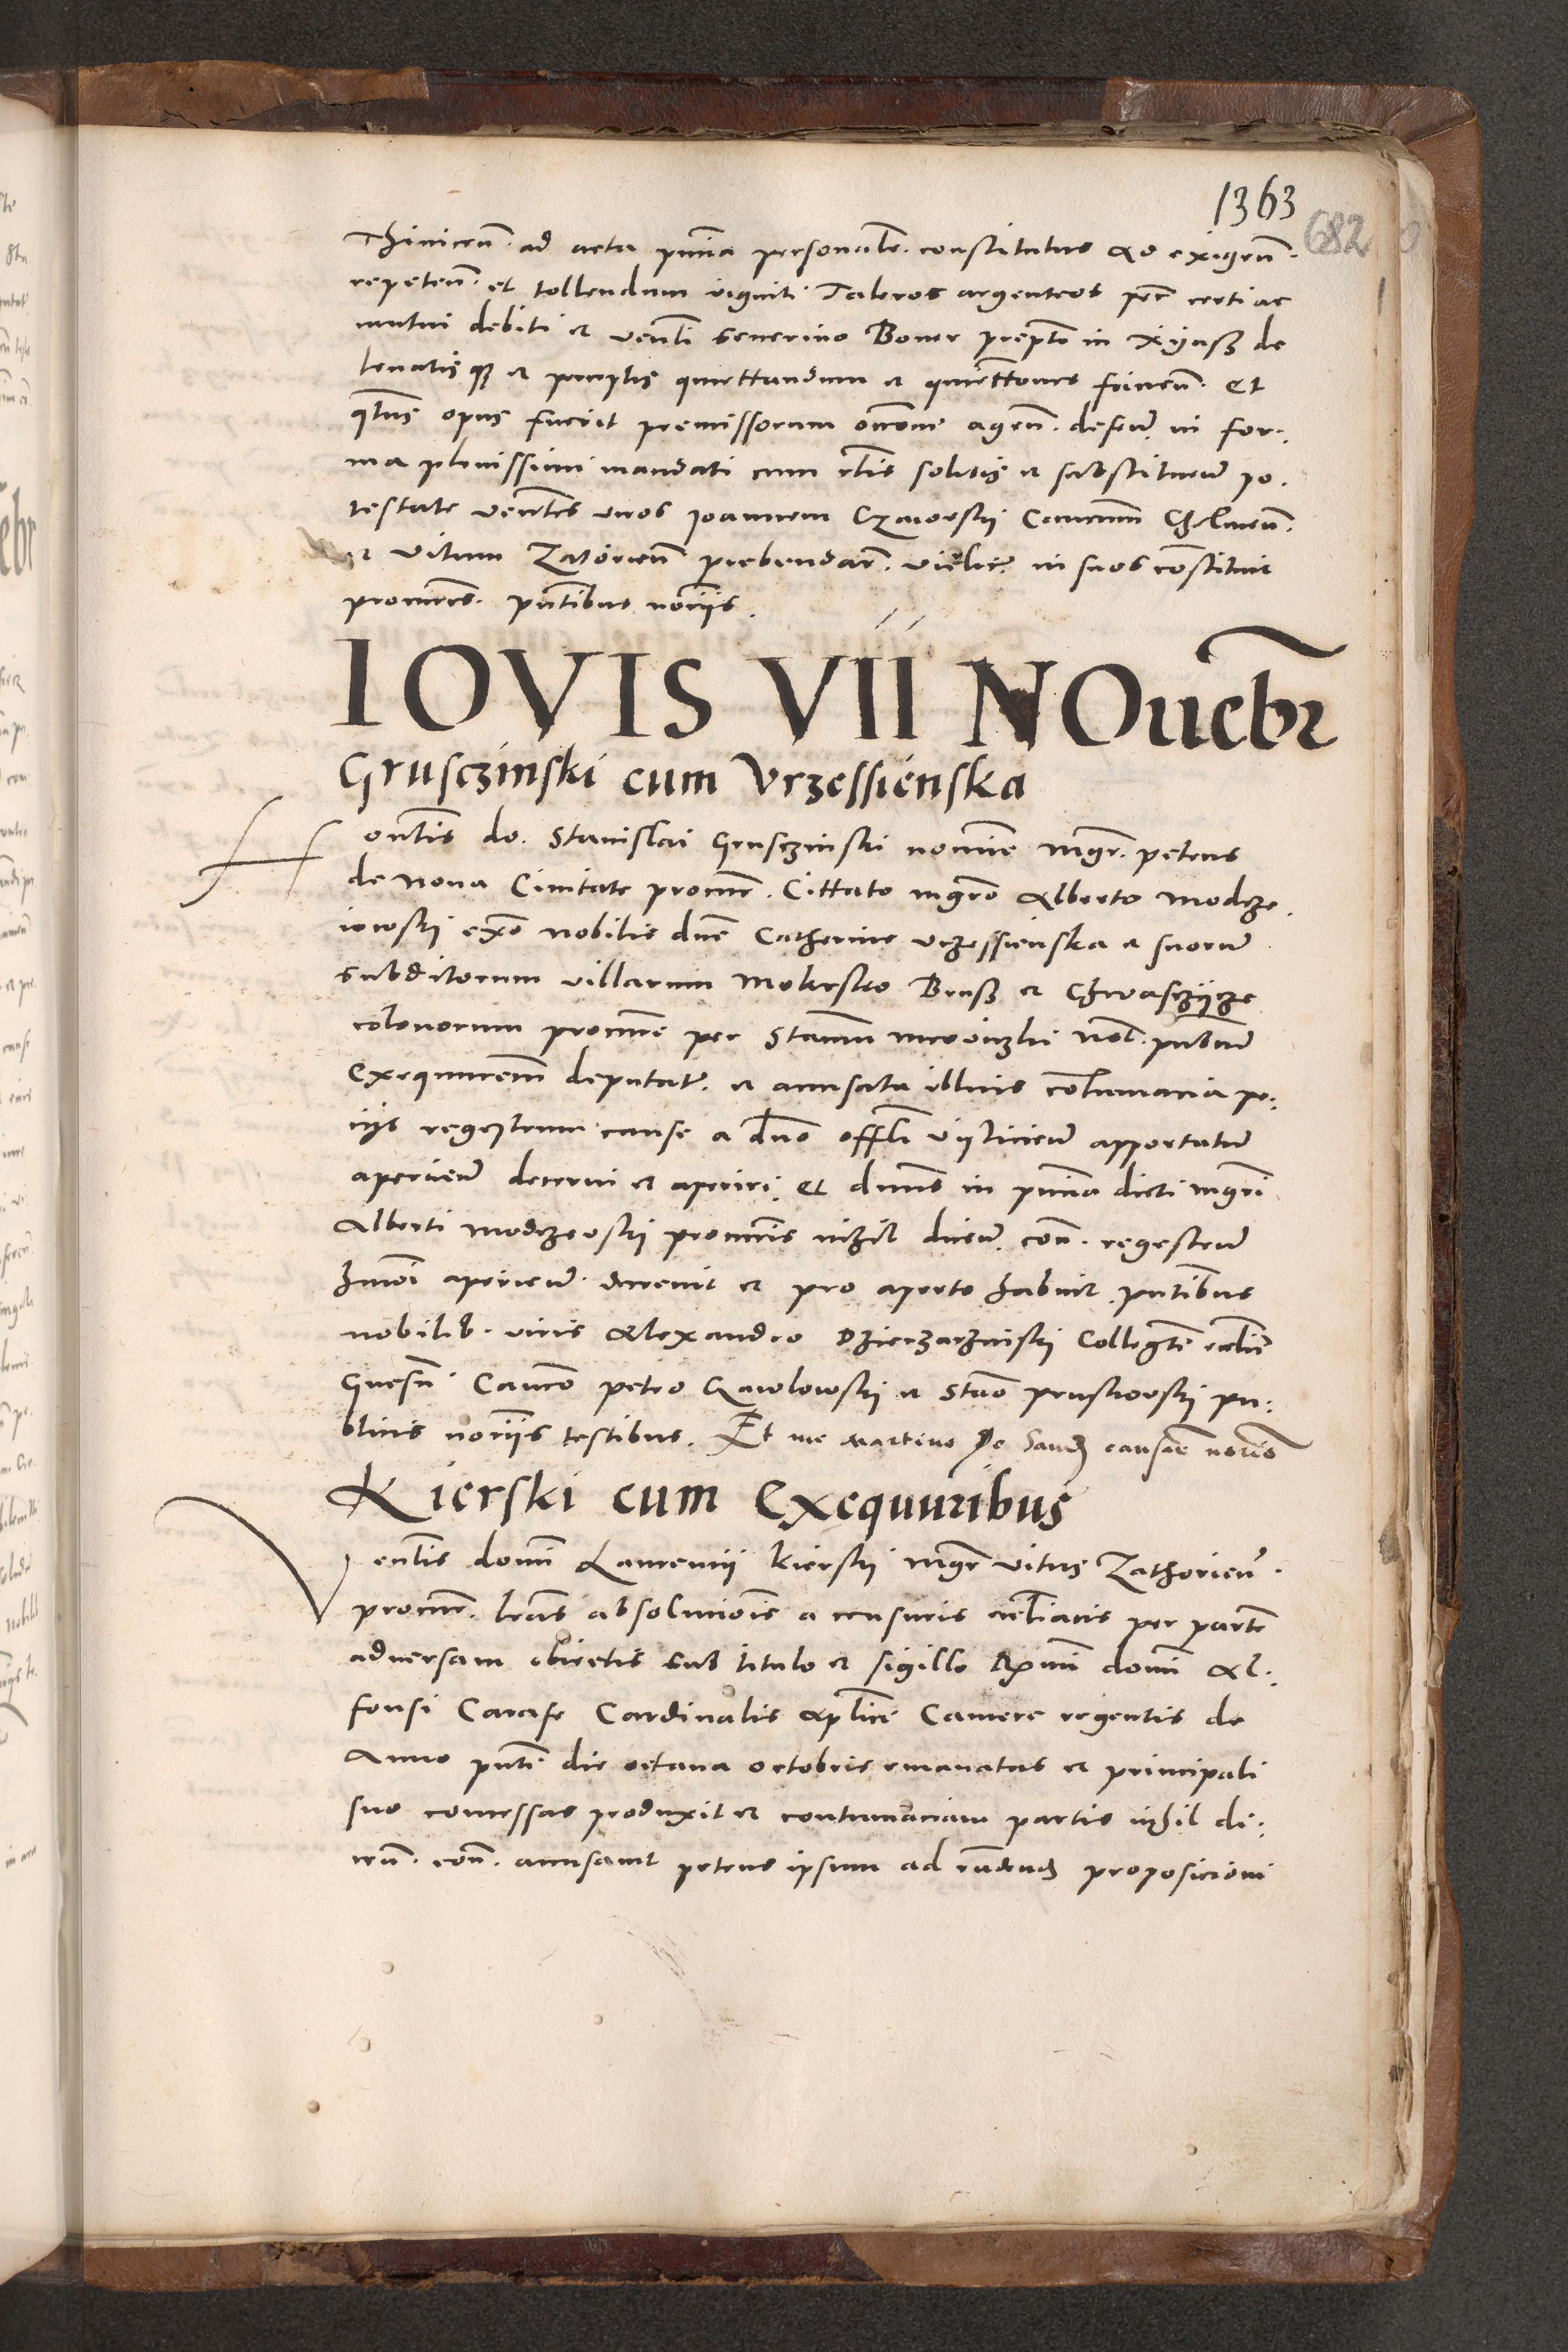 1363
682
Thinicen̄. ad acta pn̄tia personalr̄. constitutus ad exigen̄.
repeten̄. et tollendum viginti Taleros argenteos certi ac
mutui debiti et Ven̄li Severino Boner prep̄to in Xyasz de
levatisq3 et perceptis quiettandum et quiett̄ones facien̄. et
qt̄us opus fuerit premissorum occ̄one agen̄. defen̄. in for:
ma plenissimi mandati cum cl̄is solitis et substituen̄ po.
testate Ven̄les viros Joannem Czaiorskij Canonicum Chelmen̄.
et Vitum Zatorien̄ prebendar̄. in suos constituit
procur̄es. pn̄tibus not̄ijs.
IOVIS VII NOuebr
Grusczinski cum Vrzessienska
Hon̄lis do. Stanislai Grusczinski nomine mgr̄. petrus
de Nova Civitate procur̄. Cittato mgr̄o Alberto Modrze
iewskij ex̄o nobilis dn̄e Catherine Vrzessienska et suorum
subditorum villarum Mokrsko Brusz et Chwasczÿcze
colonorum procur̄e per Stan̄um not. pub̄cum
Exequutorem deputat̄. et accusata illius contumacia pe:
ijs regestrum cause a dn̄o offl̄i apportatum
aperien̄ decerni et aperiri. et dn̄us in pn̄tia dicti mgr̄i
Alberti Modrzeoskij procur̄is nihil dicen̄. con̄. regestrum
hm̄oi aperien̄. decrevit et pro aperto habuit pn̄tibus
nobilib. viris Alexandro Dzierzaznskij Collegte eccl̄ie
Gnesn̄. Can̄co petro Gawlowskij et Stan̄o pruskorskij pu:
blicis not̄ijs testibus. Et me Martino De causae not̄io
Kierski cum Exequutribus
Ven̄lis domī Laurencij Kierskij mgr̄ Vitus Zathorien̄.
procur̄. lr̄as absolucionis a censuris eccl̄iacis per partē
adversam obtentis sub titulo et sigillo R̄mi domī Al:
fonsi Carafe Cardinalis Ap̄lice Camere regentis de
Anno pn̄ti die octava octobris emanatas et principali
suo concessas produxit et contumaciam partis nihil di:
cen̄. con̄. accusavit petens ipsum ad proposicioni